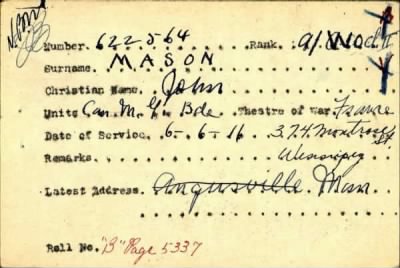 Number. 622564 Rank. a/WO cl II
Surname. MASON
Christian Name. John
Units Can. M. G. Bde Theatre of War. France
Date of Service. 6-6-16 374 Montrose St
Remarks. Winnipeg
Latest Address. Angusville Man
Roll No. "B" Page 5337